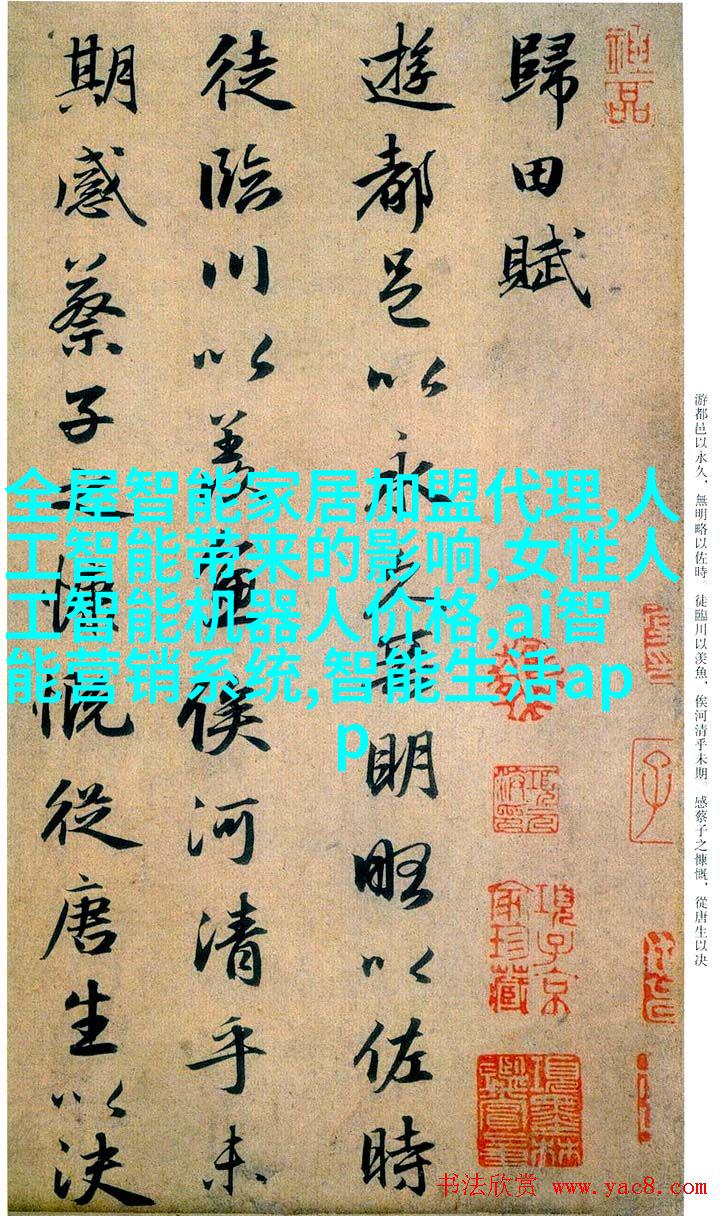 神品
歸田賦
遊都邑以永久無明略以佐時
徒臨川以羨魚俟河清乎未
期感蔡子之慷慨從唐生以決
全屋智能家居加盟代理,人
工智能带来的影响,女性人
工智能机器人价格,ai智
能营销系统,智能生活ap
p
項子京家珍藏
項墨林鑑賞章
游都邑以永久，無明略以佐時 徒臨川以羡魚，俟河清乎未期。感蔡子之慷慨，從唐生以决
书法欣赏 www.yac8.com